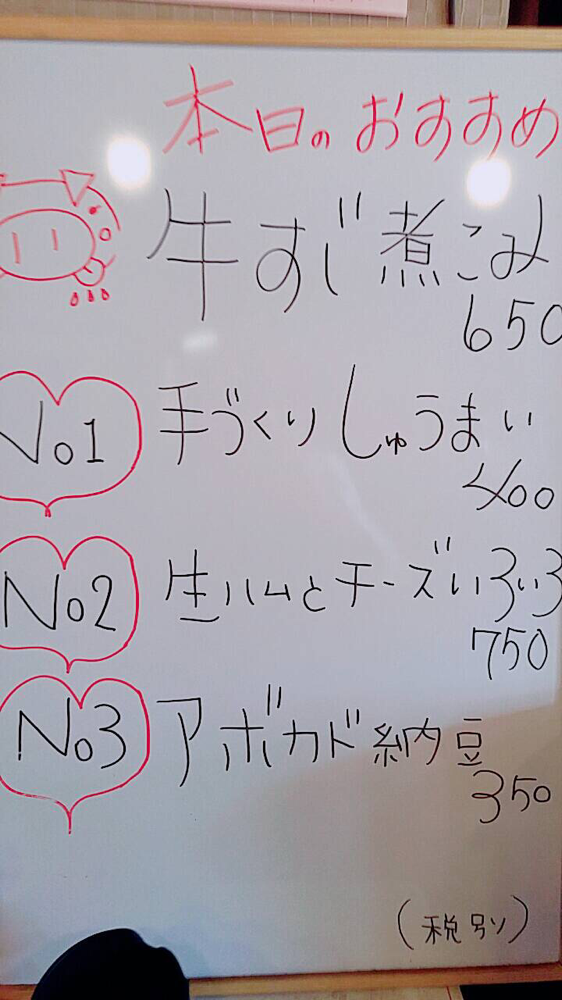 本日のおすすめ
牛すじ煮こみ
650
No1 手づくりしゅうまい
400
No2 生ハムとチーズいろいろ
750
No3 アボカド納豆
350
(税別)